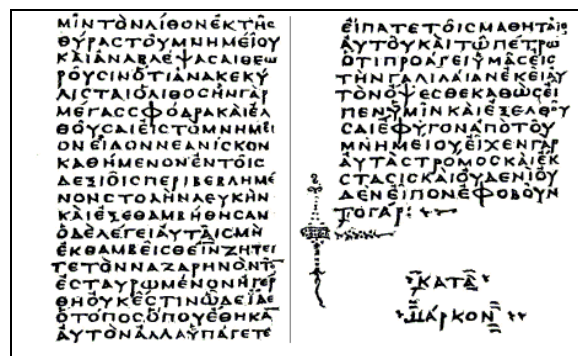 ΜΙΝΤΟΝΛΙΘΟΝΕΚΤΗC
ΘΥΡΑCΤΟΥΜΝΗΜΕΙΟΥ
ΚΑΙΑΝΑΒΛΕΨΑCΑΙΘΕΩ
ΡΟΥCΙΝΟΤΙΑΝΑΚΕΚΥ
ΛΙCΤΑΙΟΛΙΘΟCΗΝΓΑΡ
ΜΕΓΑCCΦΟΔΡΑΚΑΙΕΛ
ΘΟΥCΑΙΕΙCΤΟΜΝΗΜΕΙ
ΟΝΕΙΔΟΝΝΕΑΝΙCΚΟΝ
ΚΑΘΗΜΕΝΟΝΕΝΤΟΙC
ΔΕΞΙΟΙCΠΕΡΙΒΕΒΛΗΜΕ
ΝΟΝCΤΟΛΗΝΛΕΥΚΗΝ
ΚΑΙΕΞΕΘΑΜΒΗΘΗCΑΝ
ΟΔΕΛΕΓΕΙΑΥΤΑΙCΜΗ
ΕΚΘΑΜΒΕΙCΘΕΙΝΖΗΤΕΙ
ΤΕΤΟΝΝΑΖΑΡΗΝΟΝΤΟ
ΕCΤΑΥΡΩΜΕΝΟΝΗΓΕΡ
ΘΗΟΥΚΕCΤΙΝΩΔΕΙΔΕ
ΟΤΟΠΟCΟΠΟΥΕΘΗΚΑ
ΑΥΤΟΝΑΛΛΑΥΠΑΓΕΤΕ
ΕΙΠΑΤΕΤΟΙCΜΑΘΗΤΑΙC
ΑΥΤΟΥΚΑΙΤΩΠΕΤΡΩ
ΟΤΙΠΡΟΑΓΕΙΥΜΑCΕΙC
ΤΗΝΓΑΛΙΛΑΙΑΝΕΚΕΙΑΥ
ΤΟΝΟΨΕCΘΕΚΑΘΩCΕΙ
ΠΕΝΥΜΙΝΚΑΙΕΞΕΛΘΟΥ
CΑΙΕΦΥΓΟΝΑΠΟΤΟΥ
ΜΝΗΜΕΙΟΥΕΙΧΕΝΓΑΡ
ΑΥΤΑCΤΡΟΜΟCΚΑΙΕΚ
CΤΑCΙCΚΑΙΟΥΔΕΝΙΟΥ
ΔΕΝΕΙΠΟΝΕΦΟΒΟΥΝ
ΤΟΓΑΡ:
ΚΑΤΑ
ΜΑΡΚΟΝ